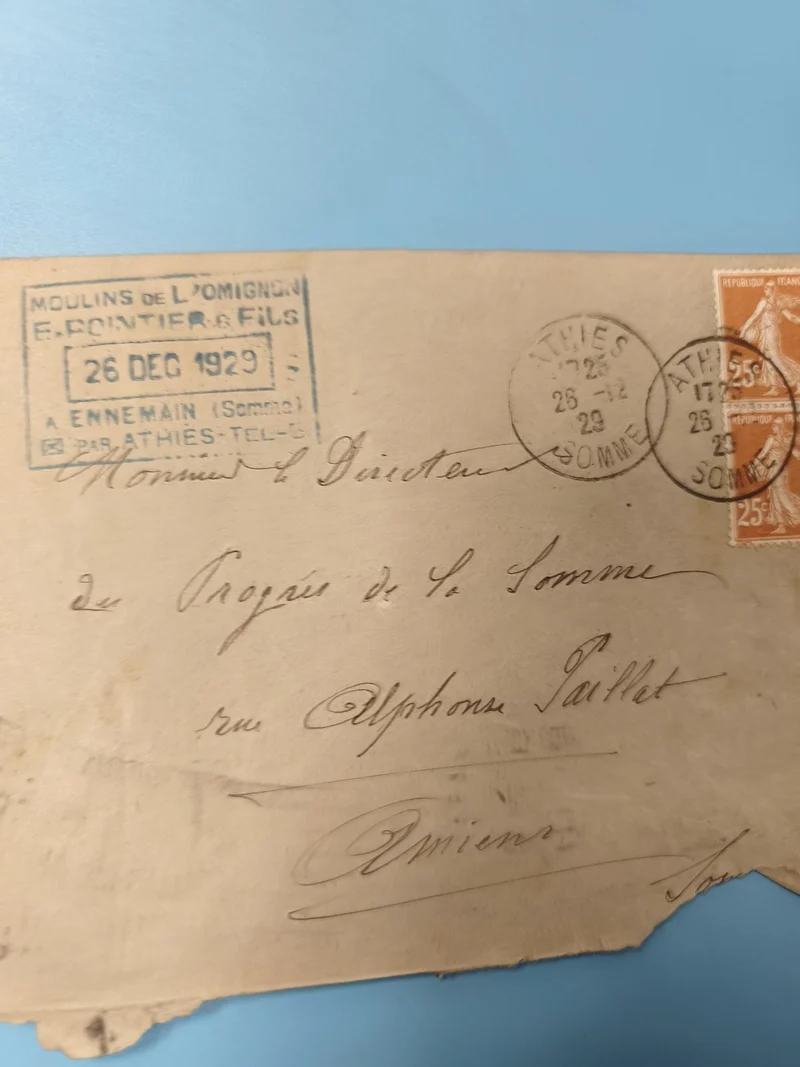 MOULINS DE L'OMIGNON
E. POINTIER & FILS
26 DEC 1929
A ENNEMAIN (Somme)
PAR ATHIES-TEL-
ATHIES
17 25
26 -12
29
SOMME
ATHIES
17 25
26
29
SOMME
REPUBLIQUE FRANC
25c
REPUBLIQUE FRA
25c
Monsieur le Directeur
du Progrès de la Somme
rue Alphonse Paillat
Amiens